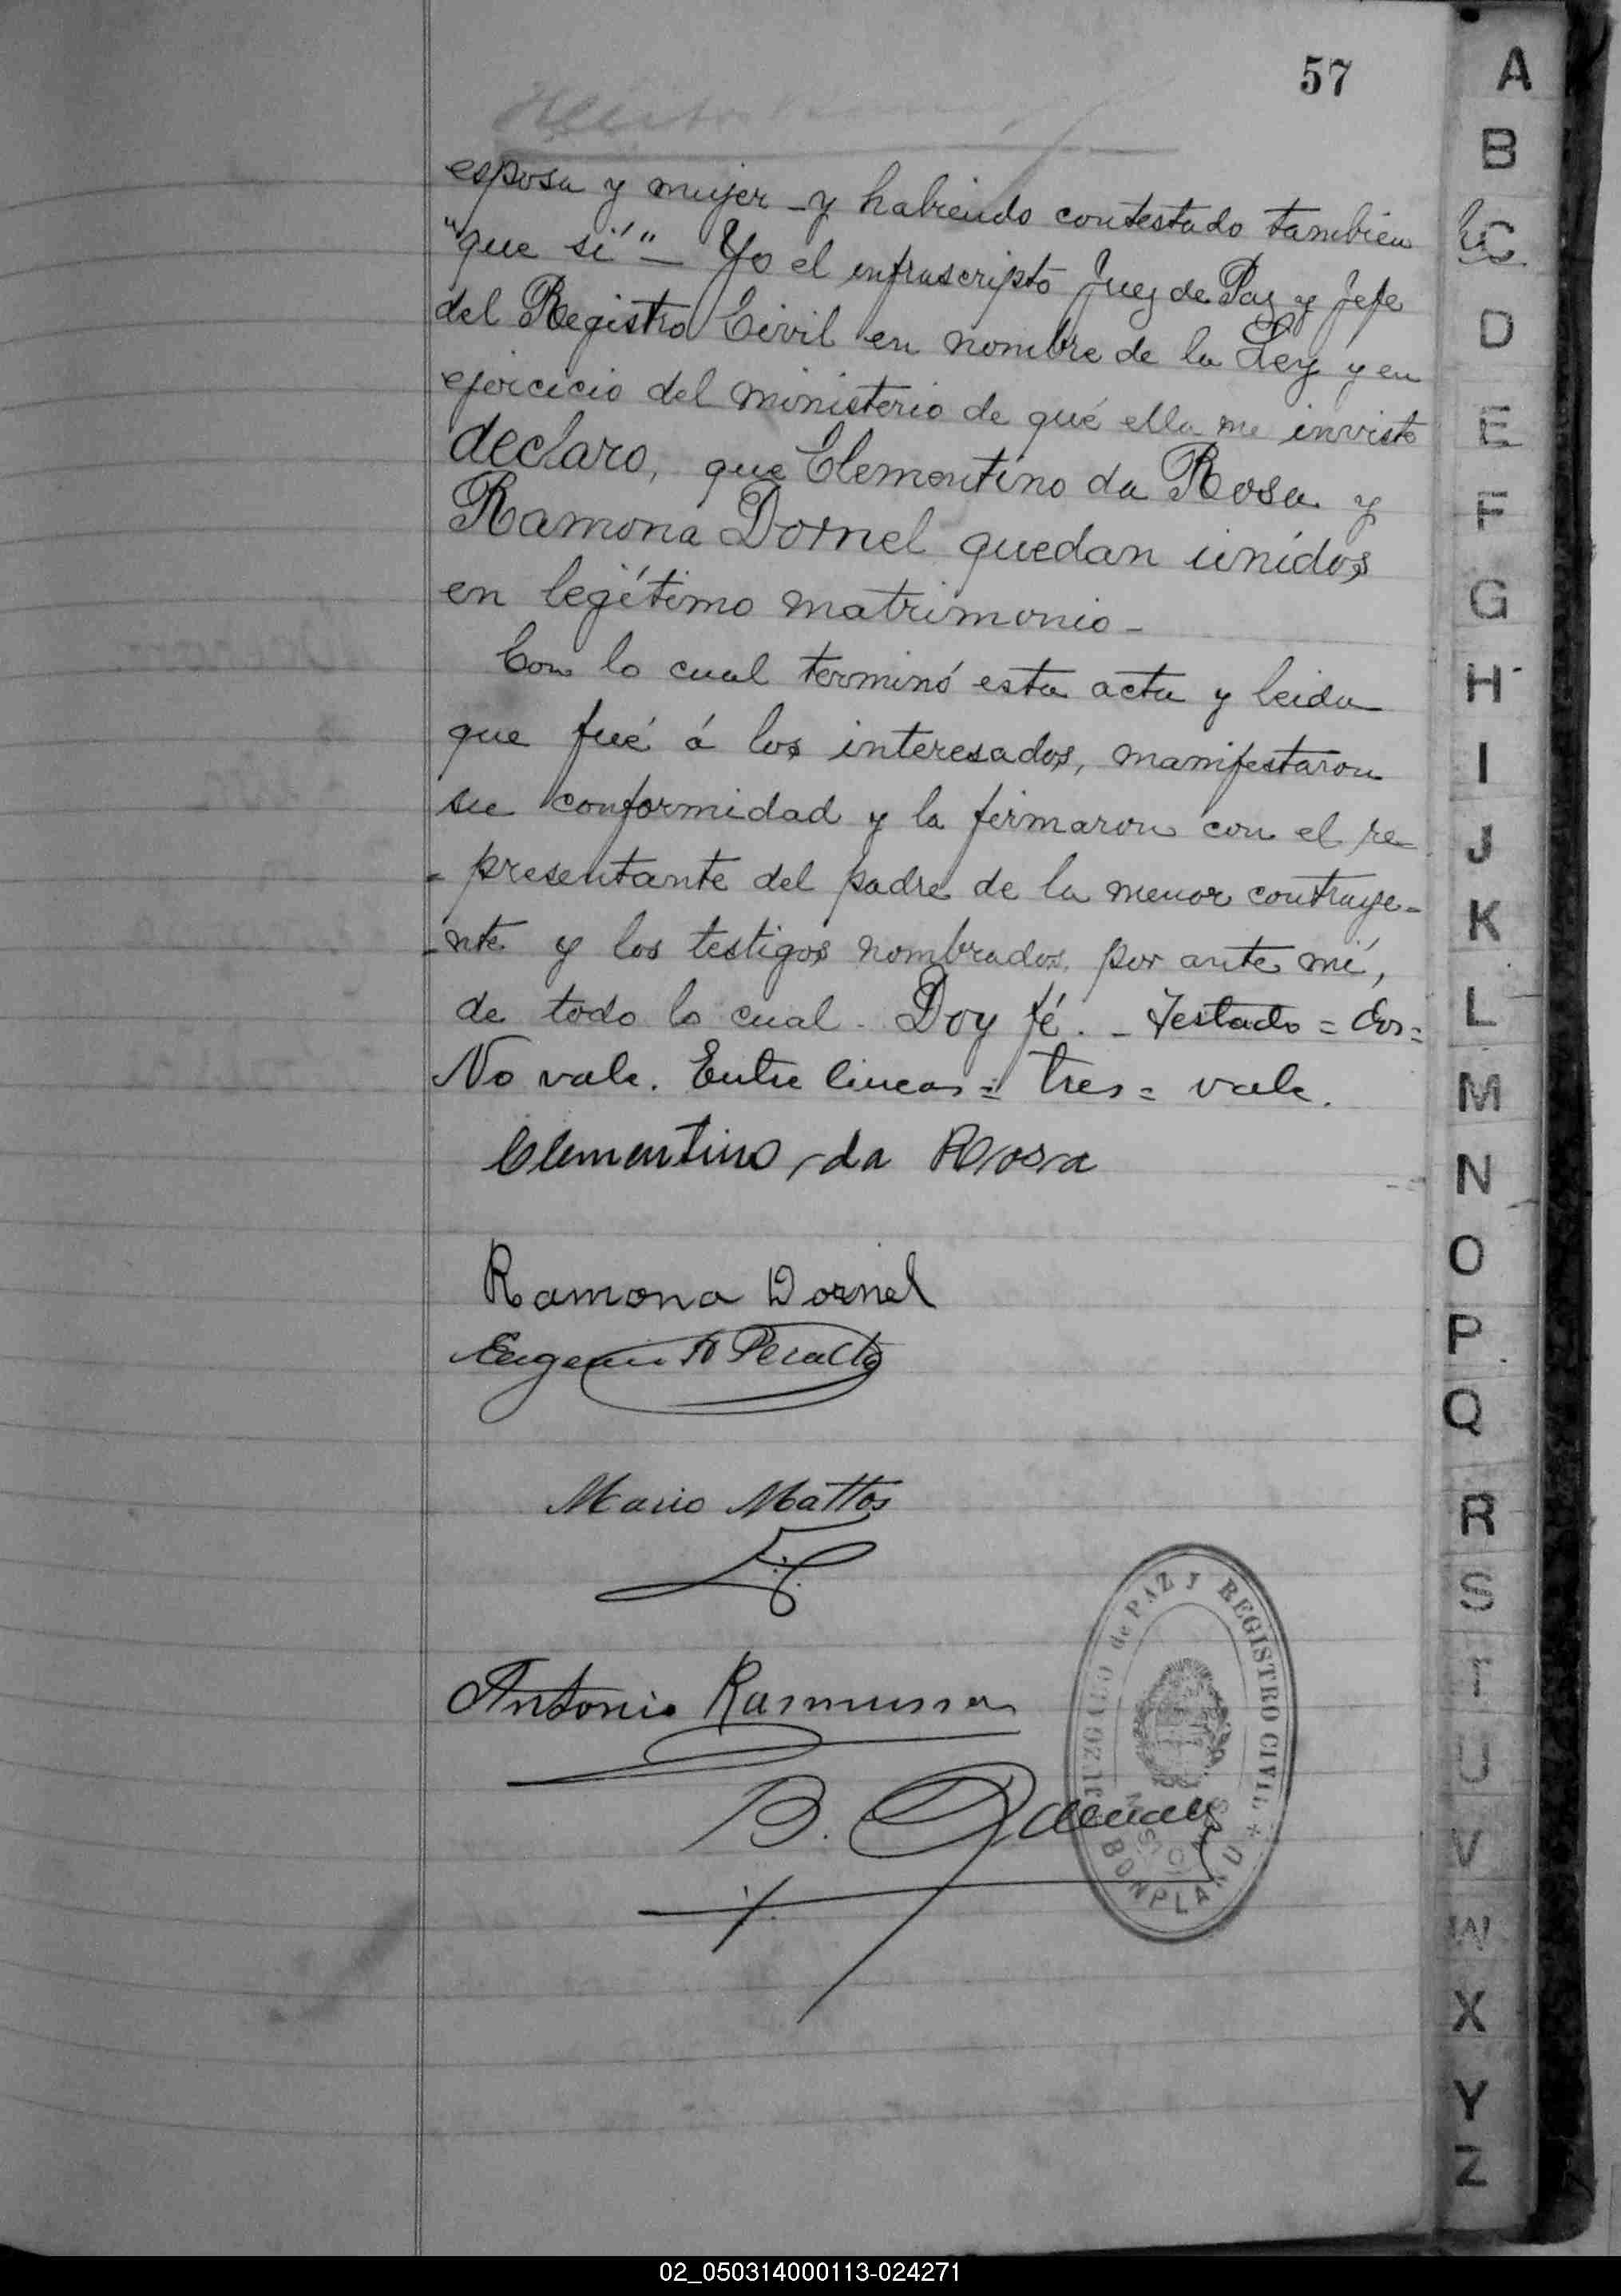 57
esposa y mujer - y habiendo contestado tambien
"que sí" - Yo el infrascripto Juez de Paz y Jefe
del Registro Civil en nombre de la Ley y en
ejercicio del ministerio de qué ella me inviste
declaro, que Clementino da Rosa y
Ramona Dornel quedan unidos
en legítimo matrimonio -
Con lo cual terminó esta acta y leida
que fué á los interesados, manifestaron
su conformidad y la firmaron con el re-
- presentante del padre de la menor contraye-
- nte y los testigos nombrados, por ante mí,
de todo lo cual. Doy fé. - Testado = dos =
No vale. Entre lineas = tres = vale.
Clementino da Rosa
Ramona Dornel
Eugenio A Peralta
Mario Mattos
Antonio Rasmussen
B.
JUZGADO de PAZ Y REGISTRO CIVIL *
MISIONES
BONPLAND
A
B
C
D
E
F
G
H
I
J
K
L
M
N
O
P
Q
R
S
T
U
V
W
X
Y
Z
02_050314000113-024271